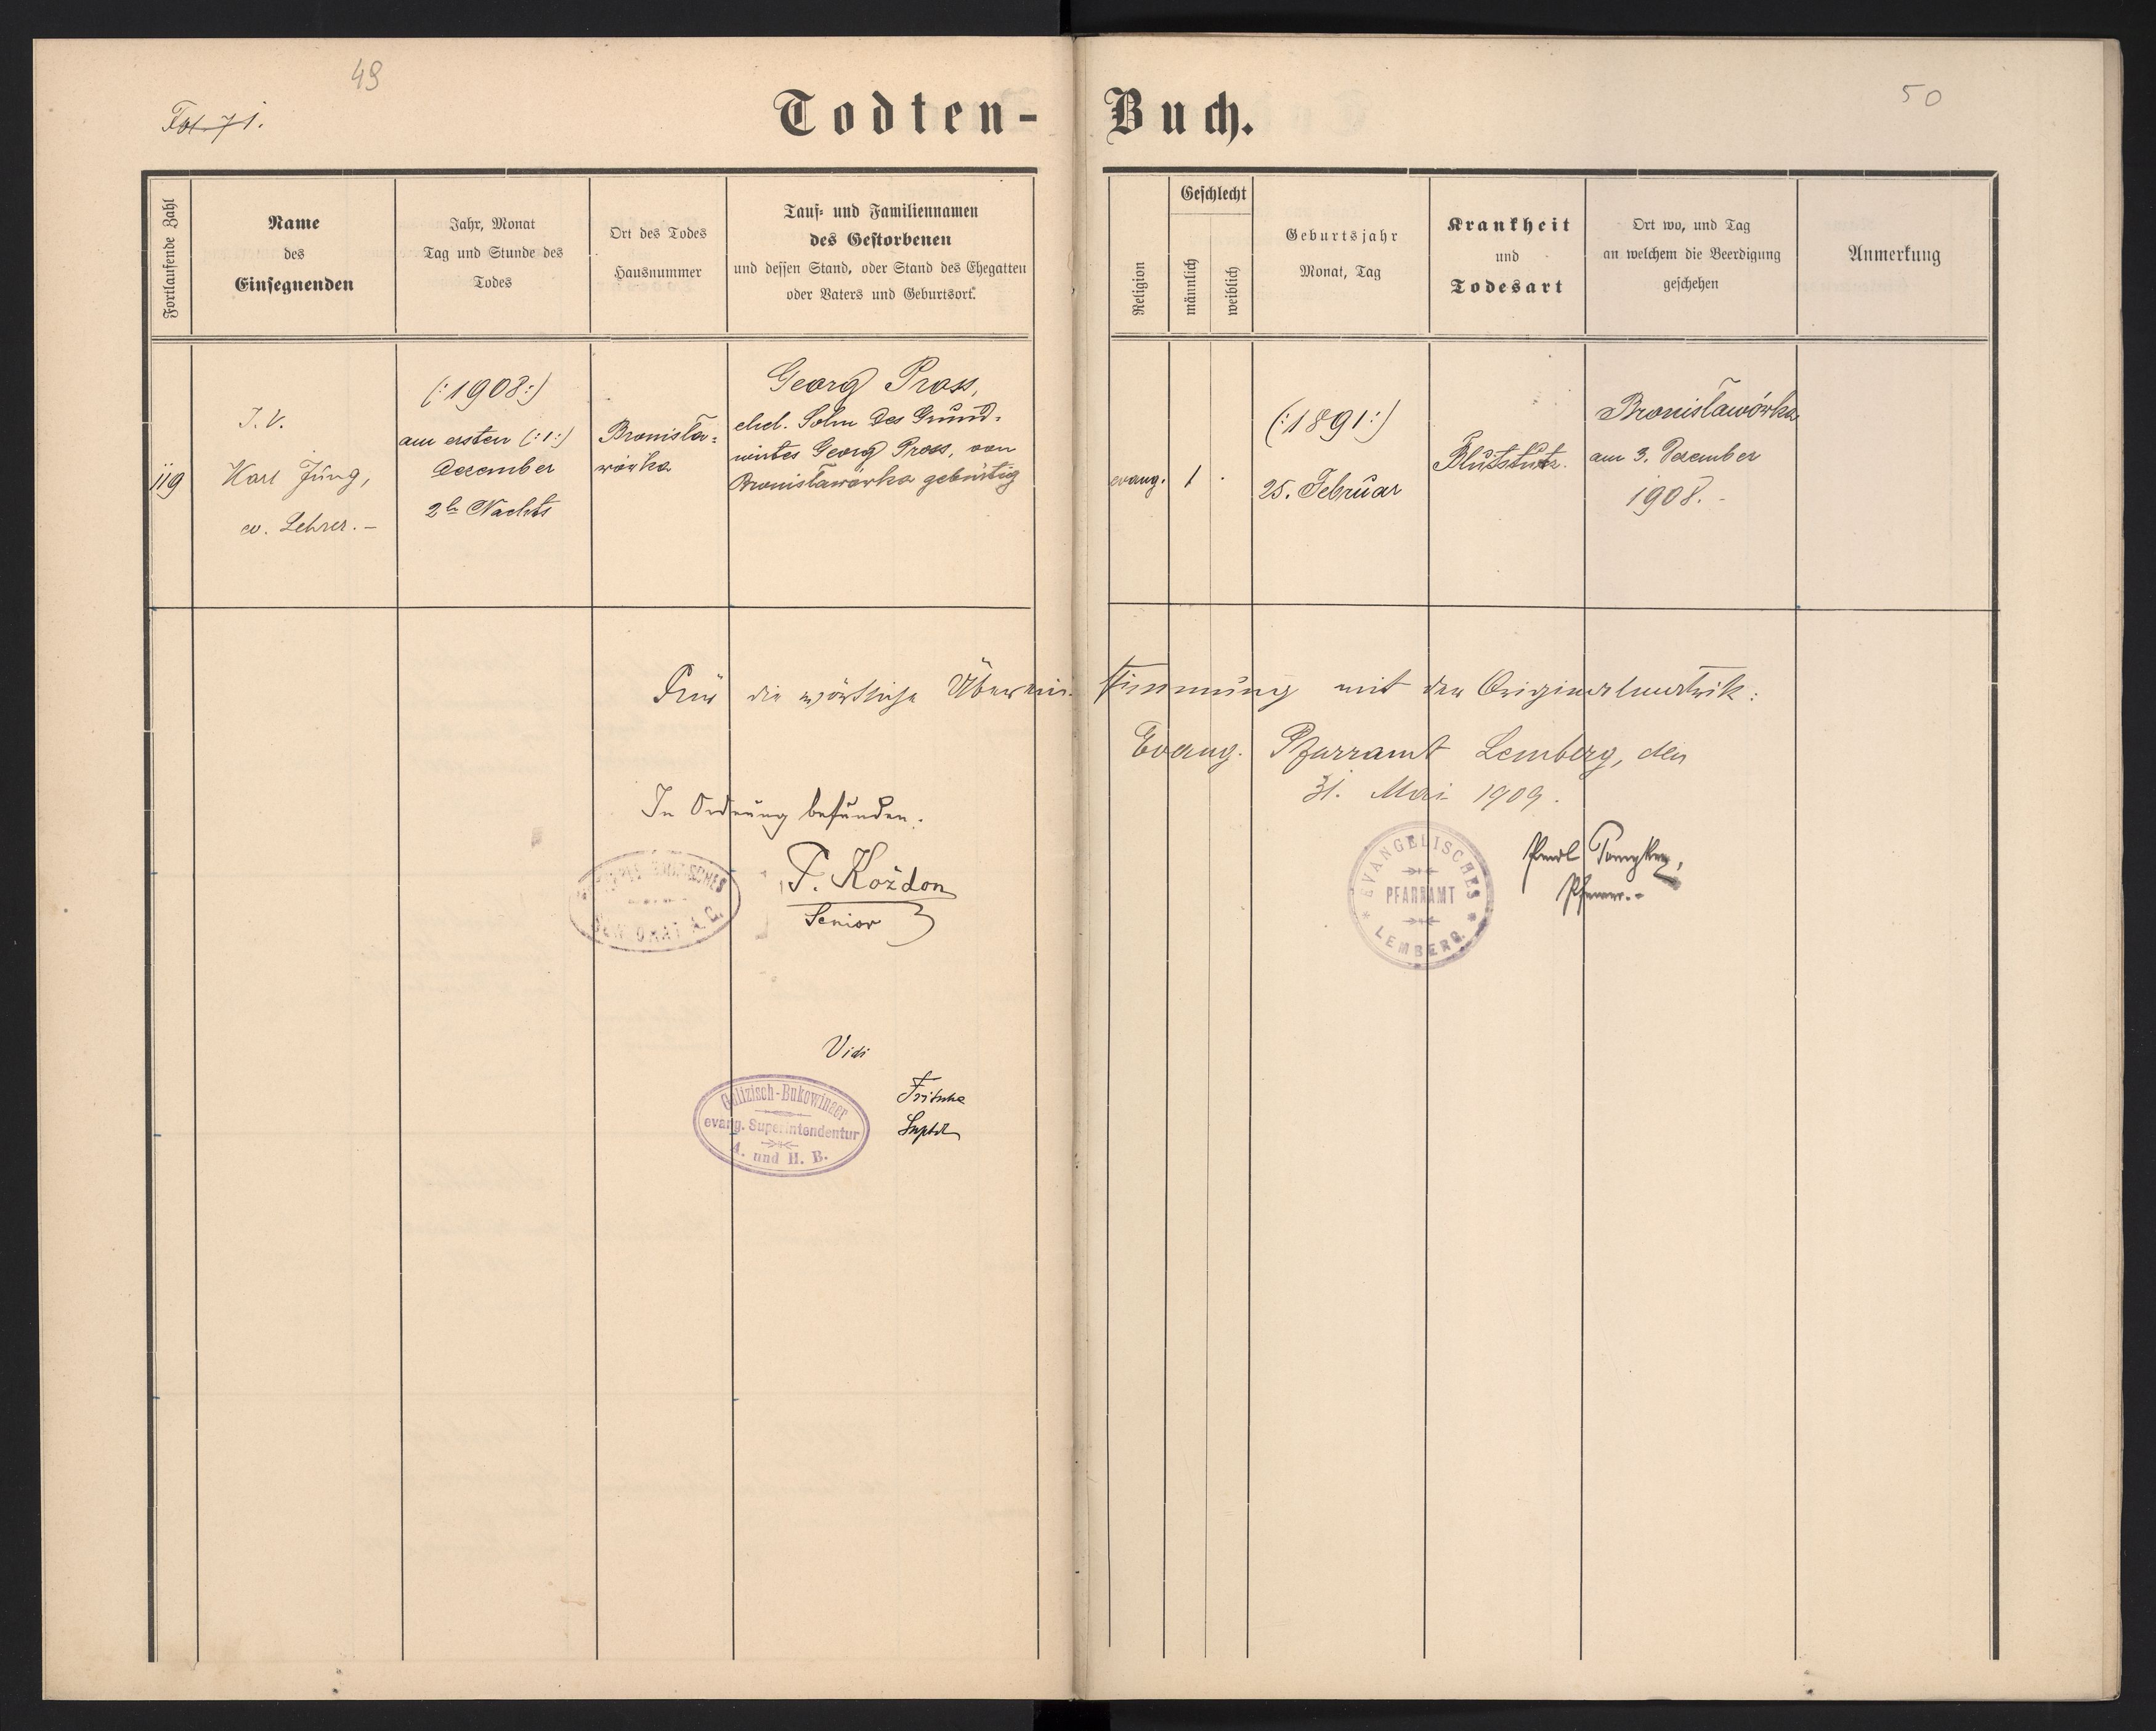 49
50
Fol. 71.
Todten-Buch.
Fortlaufende Zahl
Name
des
Einsegnenden
Jahr, Monat
Tag und Stunde des
Todes
Ort des Todes
Hausnummer
Tauf- und Familiennamen
des Gestorbenen
und dessen Stand, oder Stand des Ehegatten
oder Vaters und Geburtsort.
Religion
Geschlecht
männlich
weiblich
Geburtsjahr
Monat, Tag
Krankheit
und
Todesart
Ort wo, und Tag
an welchem die Beerdigung
geschehen
Anmerkung
119
I. V.
Karl Jüng,
ev. Lehrer. –
(:1908:)
am ersten (:1:)
Dezember
2h Nachts
Bronisła-
wówka
Georg Pross,
ehel. Sohn des Grund-
wirtes Georg Pross, von
Bronisławówka gebürtig
evang.
1
.
(:1891:)
25. Februar
Blutsturz.
Bronisławówka
am 3. Dezember
1908. -
Für die wörtliche Überein-stimmung mit der Originalmatrik:
Evang. Pfarramt Lemberg, den
31. Mai 1909.
EVANGELISCHES
PFARRAMT
LEMBERG.
Pfarrer. -
In Ordnung befunden.
SENIORAT A. C.
F. Koždon
Senior
Vidi
Galizisch-Bukowinaer
evang. Superintendentur
A. und H. B.
Fritsche
Suptdt